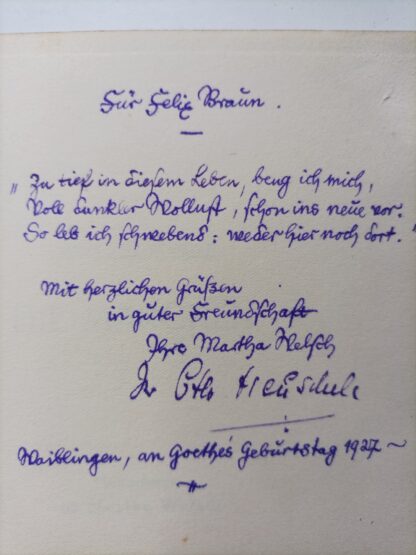 Für Felix Braun.
„Zu tief in diesem Leben, beug ich mich,
Voll dunkler Wollust, schon ins neue vor.
So leb ich schwebend: weder hier noch dort."
Mit herzlichen Grüßen
in guter Freundschaft
Ihre Martha Welsch
Ihr Otto Heuschele
Waiblingen, an Goethes Geburtstag 1927